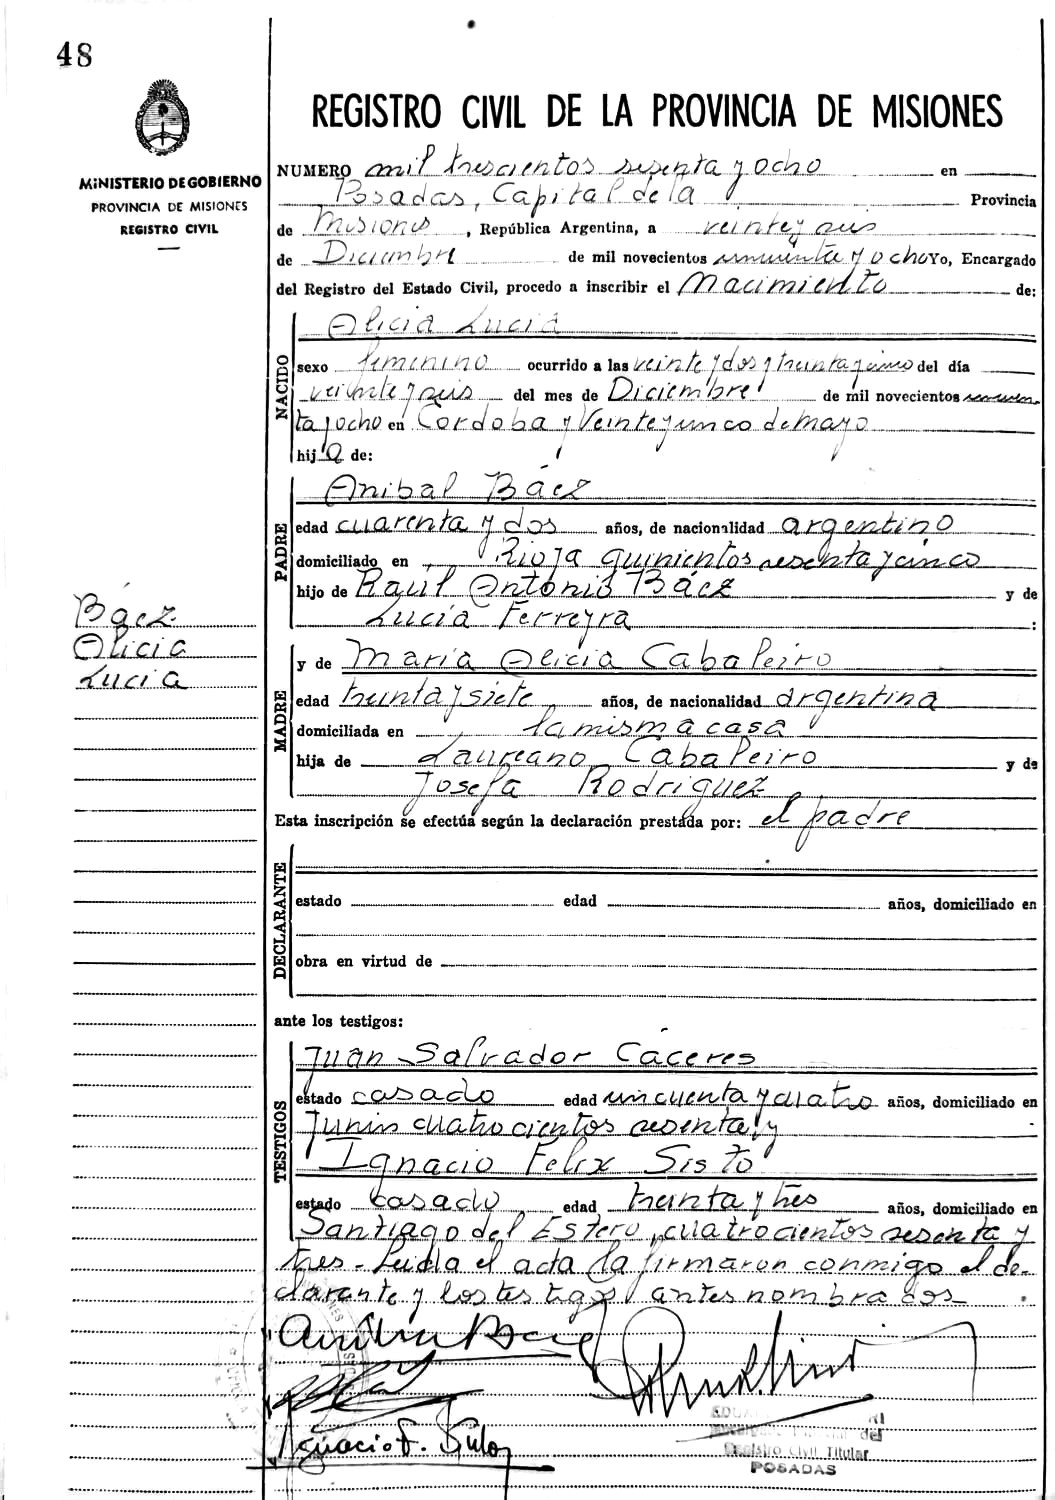 48
REGISTRO CIVIL DE LA PROVINCIA DE MISIONES
MINISTERIO DE GOBIERNO
PROVINCIA DE MISIONES
REGISTRO CIVIL
NUMERO mil trescientos sesenta y ocho en
Posadas, Capital de la Provincia
de Misiones, República Argentina, a veinte y seis
de Diciembre de mil novecientos cincuenta y ocho Yo, Encargado
del Registro del Estado Civil, procedo a inscribir el Nacimiento de:
NACIDO
Alicia Lucia
sexo femenino ocurrido a las veinte y dos y treinta y cinco del día
veinte y seis del mes de Diciembre de mil novecientos
ta y ocho en Córdoba y Veinte y cinco de mayo
hija de:
PADRE
Anibal Báez
edad cuarenta y dos años, de nacionalidad argentino
domiciliado en Rioja quinientos sesenta y cinco
hijo de Raúl Antonio Báez y de
Lucía Ferreyra :
Báez
Alicia
Lucia
MADRE
y de María Alicia Cabaleiro
edad treinta y siete años, de nacionalidad argentina
domiciliada en la misma casa
hija de Laureano Cabaleiro y de
Josefa Rodriguez
Esta inscripción se efectúa según la declaración prestada por: el padre
DECLARANTE
estado edad años, domiciliado en
obra en virtud de
ante los testigos:
TESTIGOS
Juan Salvador Cáceres
estado casado edad cincuenta y cuatro años, domiciliado en
Junin cuatrocientos sesenta y
Ignacio Felix Sisto
estado casado edad treinta y tres años, domiciliado en
Santiago del Estero, cuatrocientos sesenta y
tres - Leida el acta la firmaron conmigo el de-
clarante y los testigos antes nombrados
Anibal Baez
Ignacio F. Sisto
Registro Civil Titular
POSADAS